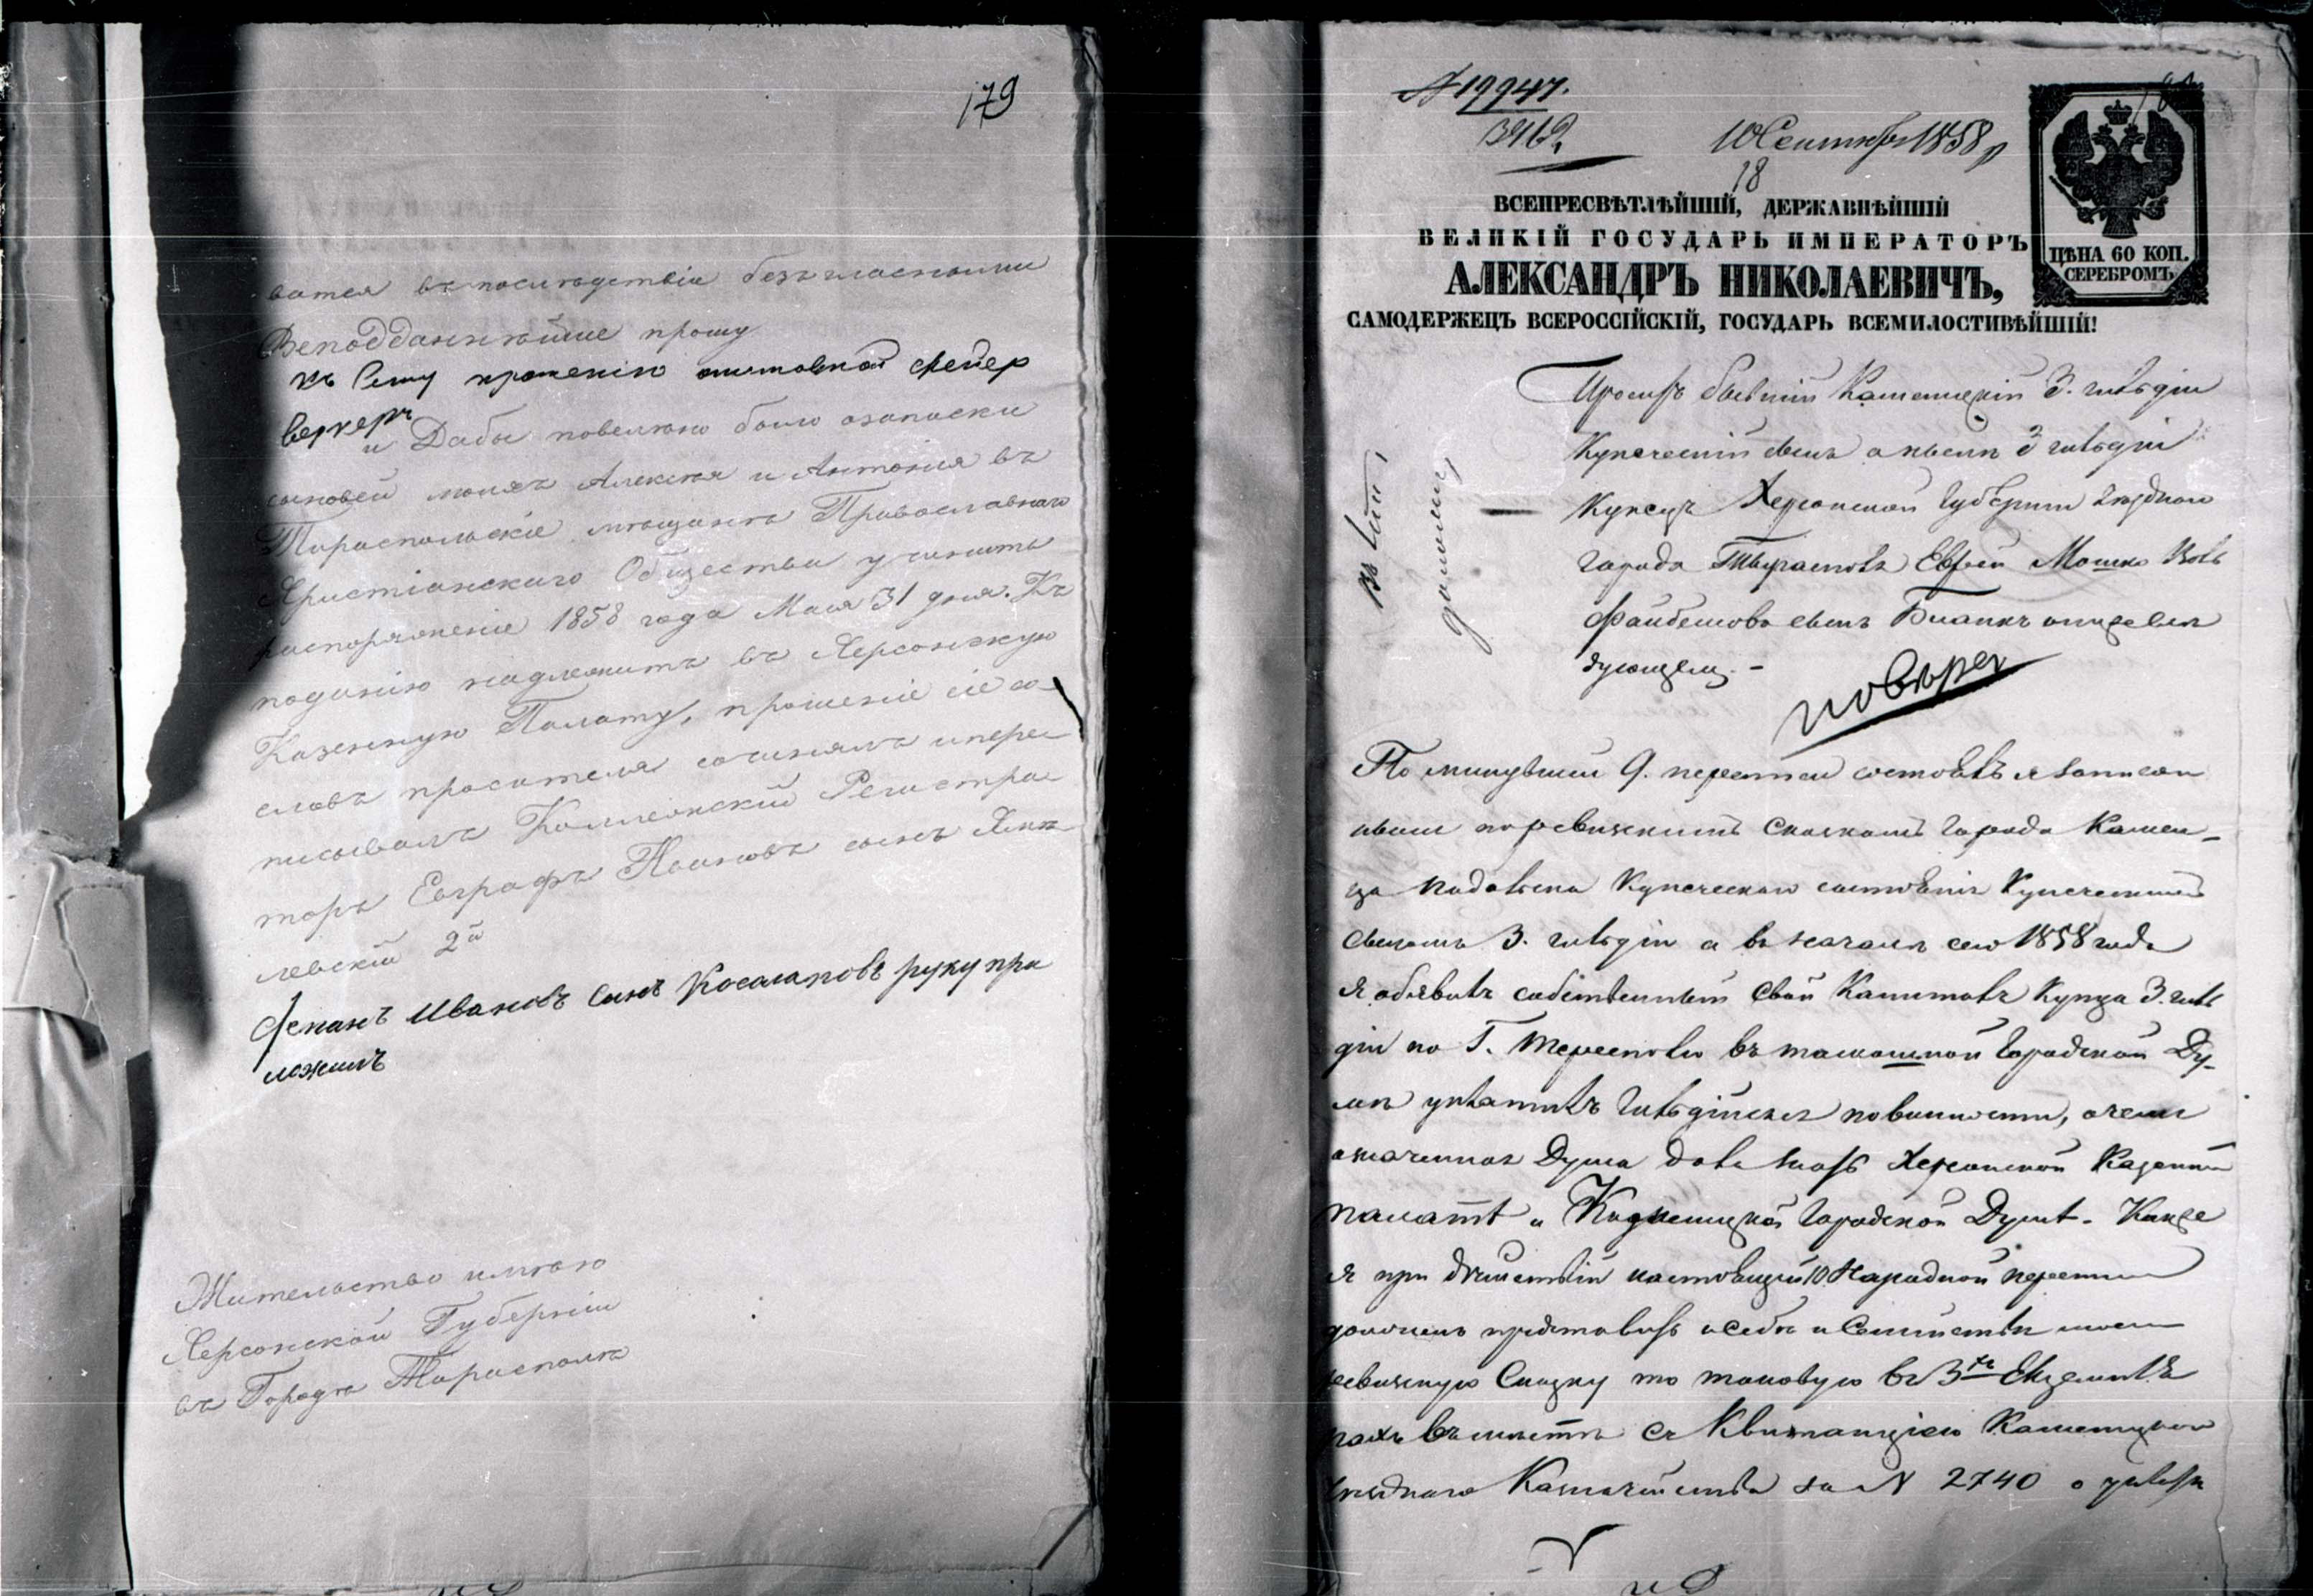 179
ваться въ последствіи безъгласными
Всеподданнѣйше прошу
Къ сему прошенію отставной фейер
веркеръ
и Дабы повелено было озаписки
сыновей моихъ Алексея и Антонія въ
Тираспольскіе мѣщанѣ Православнаго
Христіанскаго Общества учинить
распоряженіе 1858 года Мая 31 дня. Къ
поданію надлежитъ въ Херсонскую
Казенную Палату, прошеніе сіе со
словъ просителя сочинялъ ипере
писывалъ Коллежскій Регистра
торъ Евграфъ Ивановъ сынъ
левскій 2й
Степанъ Ивановъ сынъ Косалаповъ руку при
ложилъ
Жительство имѣю
Херсонской Губерніи
въ Городѣ Тирасполѣ
№ 19947.
10 Сентября 1858 р
18
ВСЕПРЕСВѢТЛѢЙШІЙ, ДЕРЖАВНѢЙШІЙ
ВЕЛИКІЙ ГОСУДАРЬ ИМПЕРАТОРЪ
АЛЕКСАНДРЪ НИКОЛАЕВИЧЪ,
САМОДЕРЖЕЦЪ ВСЕРОССІЙСКІЙ, ГОСУДАРЬ ВСЕМИЛОСТИВѢЙШІЙ!
ЦѢНА 60 КОП.
СЕРЕБРОМЪ
Проситъ бывшій Каменецкій 3. гильдіи
Купеческій сынъ а нынѣ 3 гильдіи
Купецъ Херсонской Губерніи Уѣзднаго
города Тыраспола Еврей Мошко Вол
Файбишова сынъ Бланкъ онижесле
дующемъ. –
повѣрен
По минувшей 9. переписи состоялъ я записан
нымъ поревизскимъ Сказкамъ города Камен-
ца Подольска Купеческаго состоянія Купеческимъ
Сыномъ 3. гильдіи а въ началѣ сего 1858 года
Я объявилъ собственный Свой Капиталъ Купца 3. гиль
діи по Г. Терасполю въ тамошной Городской Ду-
мѣ уплатилъ Гильдійскія повинности, очемъ
означенная Дума дала знать Херсонской Казенной
палатѣ и Каменецкой Городской Думѣ. Какже
я при дѣйствіи настоящей 10. Народной переписи
долженъ представить осебѣ и Семействѣ моемъ
ревизскую Сказку то таковую въ 3хъ Екземпля
рахъ вѣместѣ съ Квитанціею Каменецкого
Уѣзднаго Казначейства за № 2740 о уплатѣ